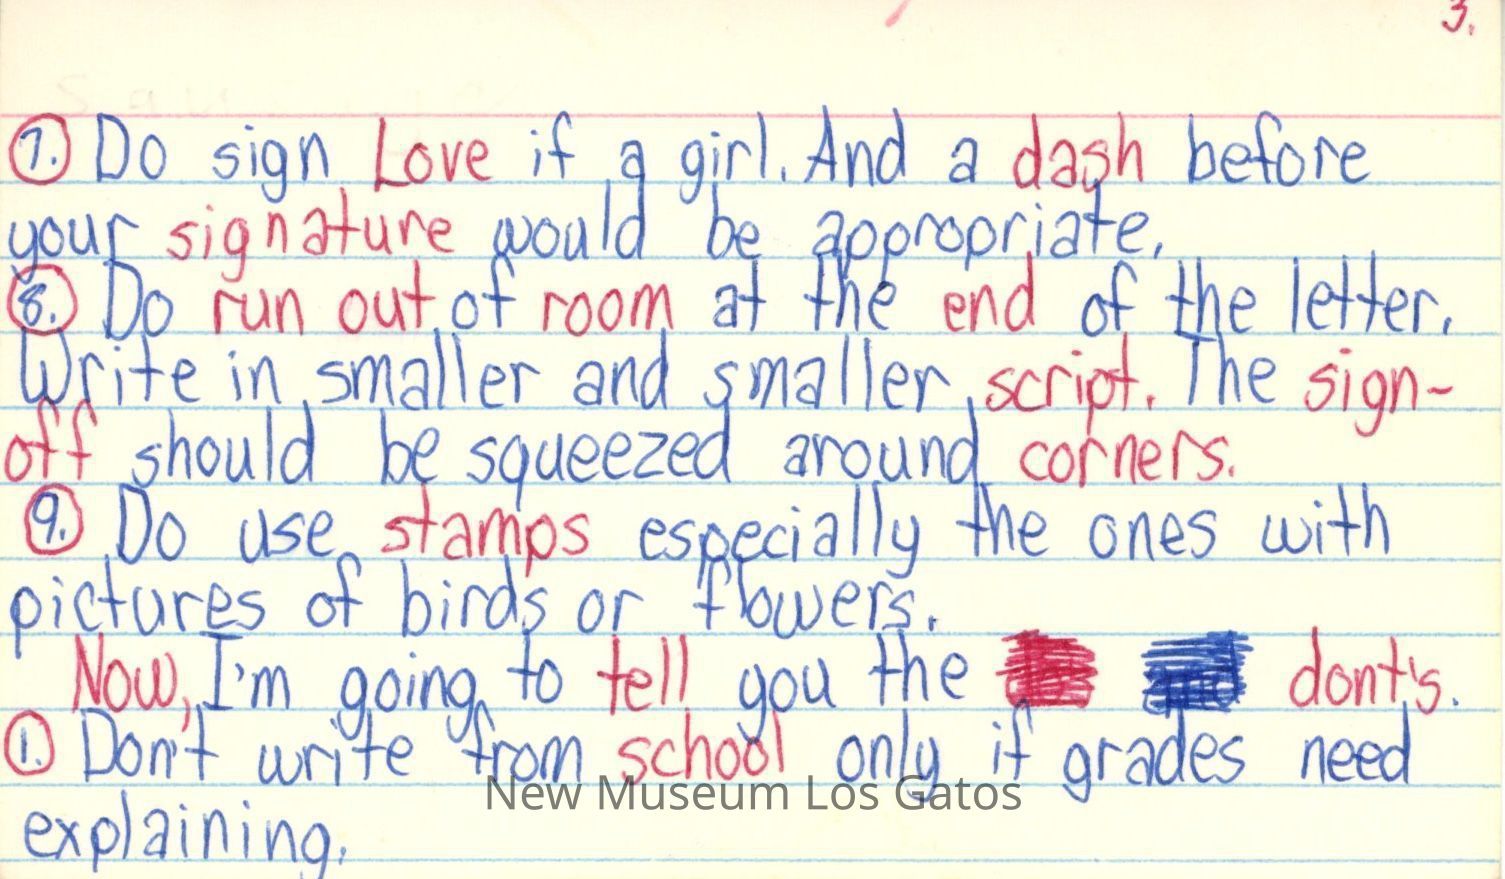 3.
7. Do sign Love if a girl. And a dash before
your signature would be appropriate.
8. Do run out of room at the end of the letter.
Write in smaller and smaller script. The sign-
off should be squeezed around corners.
9. Do use stamps especially the ones with
pictures of birds or flowers.
Now, I'm going to tell you the dont's.
1. Don't write from school only if grades need
New Museum Los Gatos
explaining.